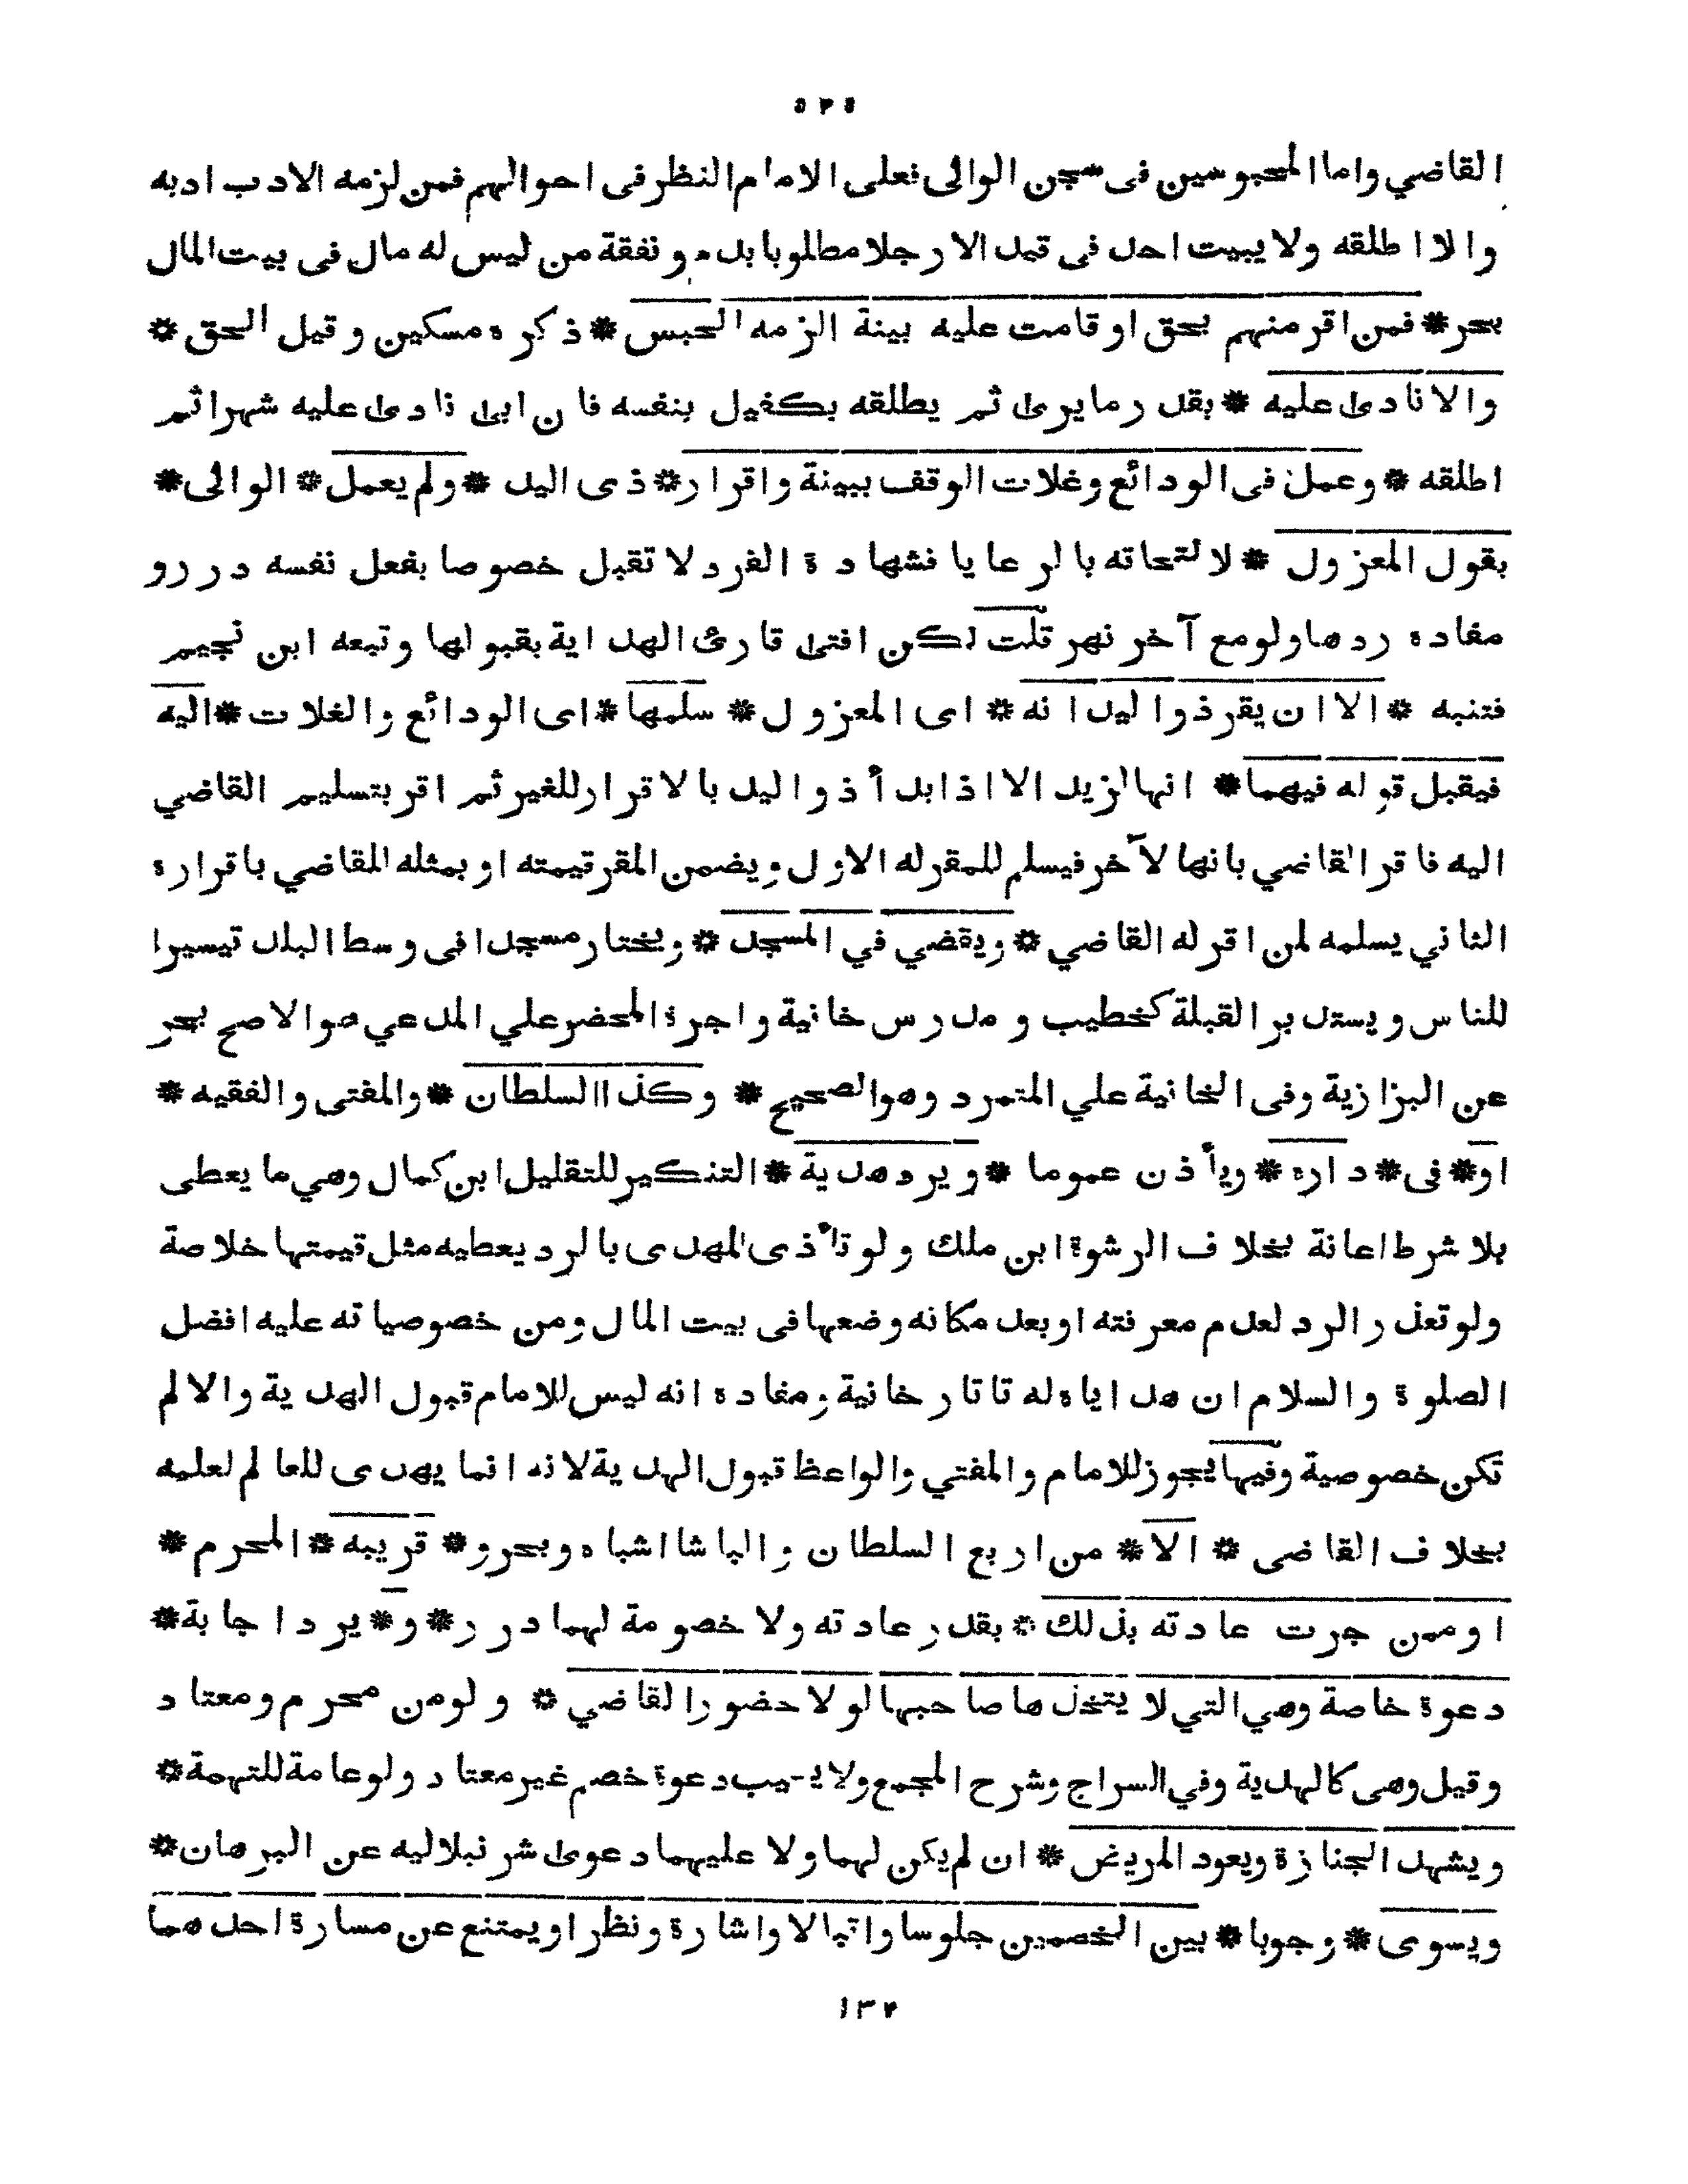 القاضي واما المحبوسين فى سجن الوالى فعلى الامام النظر فى احوالهم فمن لزمه الادب ادبه
والا اطلقه ولا يبيت احد فى قيد الا رجلا مطلوبا بدم ونفقة من ليس له مال فى بيت المال
بحر * فمن اقر منهم بحق او قامت عليه بينة الزمه الحبس * ذكره مسكين وقيل الحق *
والا نادى عليه * بقدر ما يرى ثم يطلقه بكفيل بنفسه فان ابى نادى عليه شهرا ثم
اطلقه * وعمل فى الودائع وغلات الوقف ببينة واقرار * ذى اليد * ولم يعمل * الوالى *
بقول المعزول * لالتحاقه بالرعايا فشهادة الفرد لا تقبل خصوصا بفعل نفسه درر و
مفاده ردها ولو مع آخر نهر قلت لكن افتى قارئ الهداية بقبولها وتبعه ابن نجيم
فتنبه * الا ان يقر ذو اليد انه * اى المعزول * سلمها * اى الودائع والغلات * اليه
فيقبل قوله فيهما * انها لزيد الا اذا بدأ ذو اليد بالاقرار للغير ثم اقر بتسليم القاضي
اليه فاقر القاضي بانها لآخر فيسلم للمقر له الاول ويضمن المقر قيمته او بمثله للقاضي باقراره
الثاني يسلمه لمن اقر له القاضي * ويقضي في المسجد * ويختار مسجدا فى وسط البلد تيسيرا
للناس ويستدبر القبلة كخطيب ومدرس خانية واجرة المحضر علي المدعي هو الاصح بحر
عن البزازية وفى الخانية علي المتمرد وهو الصحيح * وكذا السلطان * والمفتى والفقيه *
او * فى * داره * ويأذن عموما * ويرد هدية * التنكير للتقليل ابن كمال وهي ما يعطى
بلا شرط اعانة بخلاف الرشوة ابن ملك ولو تأذى المهدى بالرد يعطيه مثل قيمتها خلاصة
ولو تعذر الرد لعدم معرفته او بعد مكانه وضعها فى بيت المال ومن خصوصياته عليه افضل
الصلوة والسلام ان هداياه له تاتارخانية ومفاده انه ليس للامام قبول الهدية والا لم
تكن خصوصية وفيها يجوز للامام والمفتي والواعظ قبول الهدية لانه انما يهدى للعالم لعلمه
بخلاف القاضى * الا * من اربع السلطان والباشا اشباه وبحر و * قريبه * المحرم *
او ممن جرت عادته بذلك * بقدر عادته ولا خصومة لهما درر * و * يرد اجابة *
دعوة خاصة وهي التي لا يتخذها صاحبها لولا حضور القاضي * ولو من محرم ومعتاد
وقيل وهى كالهدية وفي السراج وشرح المجمع ولا يجيب دعوة خصم غير معتاد ولو عامة للتهمة *
ويشهد الجنازة ويعود المريض * ان لم يكن لهما ولا عليهما دعوى شرنبلاليه عن البرهان *
ويسوى * وجوبا * بين الخصمين جلوسا واقبالا واشارة ونظرا ويمتنع عن مسارة احدهما